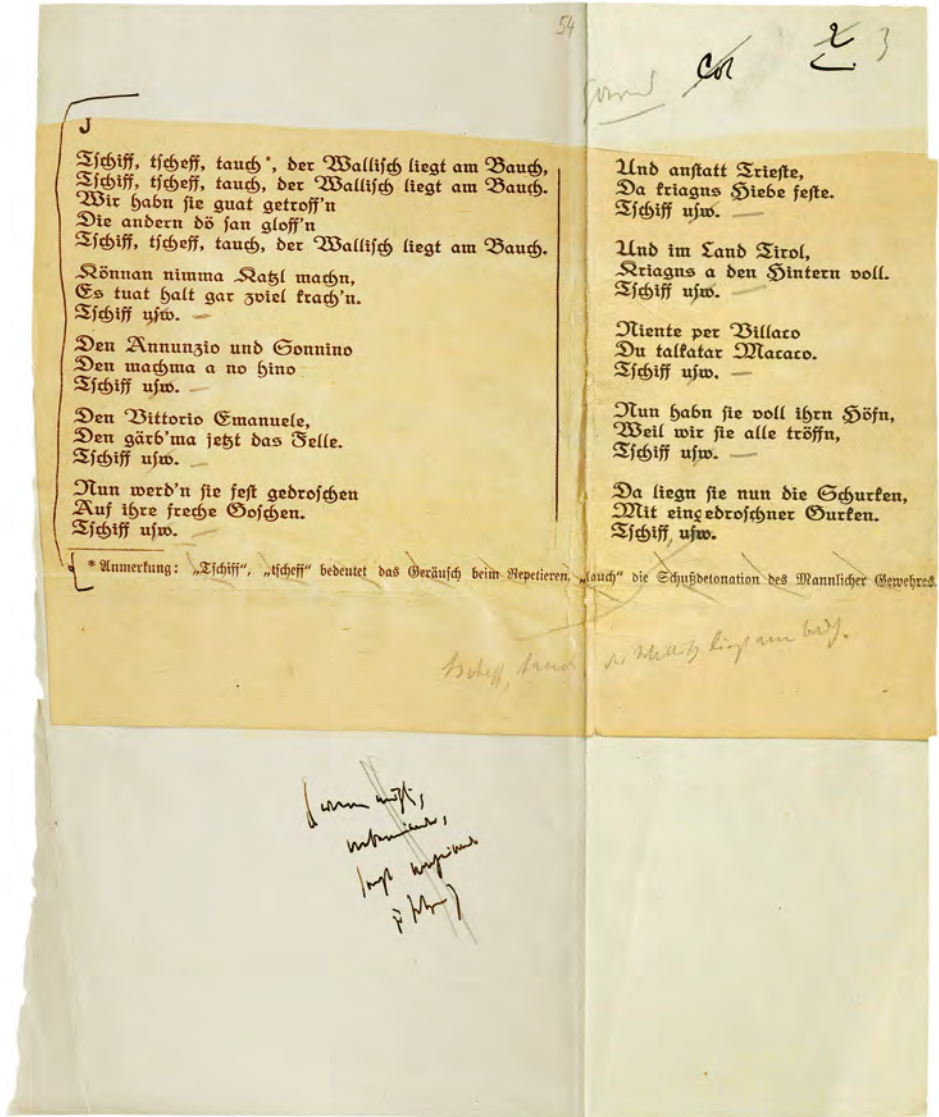 54
Cor 2 3
J
Tschiff, tscheff, tauch*, der Wallisch liegt am Bauch,
Tschiff, tscheff, tauch, der Wallisch liegt am Bauch.
Wir habn sie guat getroff'n
Die andern dö san gloff'n
Tschiff, tscheff, tauch, der Wallisch liegt am Bauch.
Könnan nimma Katzl machn,
Es tuat halt gar zviel krach'n.
Tschiff usw. —
Den Annunzio und Sonnino
Den machma a no hino
Tschiff usw. —
Den Vittorio Emanuele,
Den gärb'ma jetzt das Felle.
Tschiff usw. —
Nun werd'n sie fest gedroschen
Auf ihre freche Goschen.
Tschiff usw. —
Und anstatt Trieste,
Da kriagns Hiebe feste.
Tschiff usw. —
Und im Land Tirol,
Kriagns a den Hintern voll.
Tschiff usw. —
Niente per Villaco
Du talkatar Macaco.
Tschiff usw. —
Nun habn sie voll ihrn Höfn,
Weil wir sie alle tröffn,
Tschiff usw. —
Da liegn sie nun die Schurken,
Mit eingedroschner Gurken.
Tschiff, usw.
* Anmerkung: „Tschiff“, „tscheff“ bedeutet das Geräusch beim Repetieren, „tauch“ die Schußdetonation des Mannlicher Gewehres.
tscheff, tauch der Wallisch liegt am Bauch.